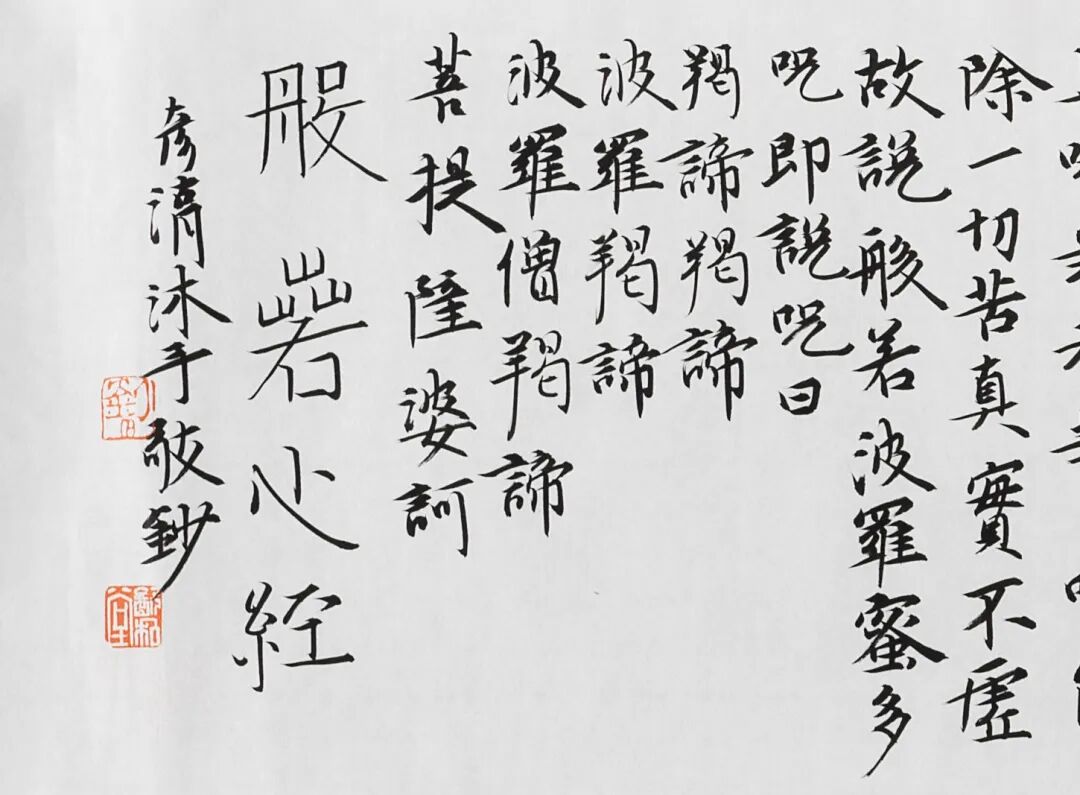 除一切苦真實不虛
故說般若波羅蜜多
咒即說咒曰
羯諦羯諦
波羅羯諦
波羅僧羯諦
菩提薩婆訶
般若心經
彥沐手敬鈔